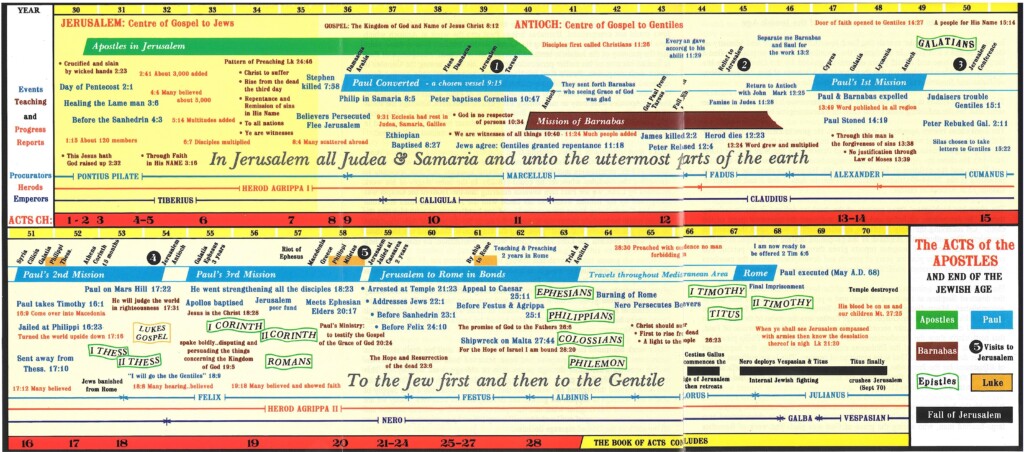 YEAR 30 31 32 33 34 35 36 37 38 39 40 41 42 43 44 45 46 47 48 49 50
JERUSALEM: Centre of Gospel to Jews
GOSPEL: The Kingdom of God and Name of Jesus Christ 8:12
ANTIOCH: Centre of Gospel to Gentiles
Door of faith opened to Gentiles 14:27
A people for His Name 15:14
Apostles in Jerusalem
Disciples first called Christians 11:26
Separate me Barnabas
and Saul for
the work 13:2
GALATIANS
Damascus
Arabia
Flees
Damascus
Jerusalem
Tarsus
1
Relief to
Jerusalem
2
Cyprus
Galatia
Lycaonia
Antioch
3
Jerusalem
Conference
Events
Teaching
and
Progress
Reports
• Crucified and slain
by wicked hands 2:23
Day of Pentecost 2:1
Healing the Lame man 3:6
1:15 About 120 members
• This Jesus hath
God raised up 2:32
2:41 About 3,000 added
4:4 Many believed
about 5,000
Before the Sanhedrin 4:3
5:14 Multitudes added
6:7 Disciples multiplied
• Through Faith
in His NAME 3:16
Pattern of Preaching Lk 24:46
• Christ to suffer
• Rise from the dead
the third day
• Repentance and
Remission of sins
in His Name
• To all nations
• Ye are witnesses
Stephen
killed 7:58
Believers Persecuted
Flee Jerusalem
8:4 Many scattered abroad
Paul Converted - a chosen vessel 9:15
Philip in Samaria 8:5
Peter baptises Cornelius 10:47
9:31 Ecclesias had rest in
Judea, Samaria, Galilee
• God is no respecter
of persons 10:34
Ethiopian
Baptised 8:27
• We are witnesses of all things 10:40
Jews agree: Gentiles granted repentance 11:18
Antioch
They sent forth Barnabas
who seeing Grace of God
was glad
Mission of Barnabas
11:24 Much people added
Return to Antioch
with John Mark 12:25
Famine in Judea 11:28
James killed 12:2
Herod dies 12:23
12:24 Word grew and multiplied
Paul's 1st Mission
Paul & Barnabas expelled
13:49 Word published in all region
Paul Stoned 14:19
• Through this man is
the forgiveness of sins 13:38
• No justification through
Law of Moses 13:39
Judaisers trouble
Gentiles 15:1
Peter Rebuked Gal. 2:11
Silas chosen to take
letters to Gentiles 15:22
In Jerusalem all Judea & Samaria and unto the uttermost parts of the earth
Procurators PONTIUS PILATE MARCELLUS FADUS ALEXANDER CUMANUS
Herods HEROD AGRIPPA I
Emperors TIBERIUS CALIGULA CLAUDIUS
ACTS CH: 1-2 3 4-5 6 7 8 9 10 11 12 13-14 15
51 52 53 54 55 56 57 58 59 60 61 62 63 64 65 66 67 68 69 70
Syria
Cilicia
Galatia
Philippi
Thes.
Athens
Corinth
18 months
4
Jerusalem
Antioch
Galatia
Ephesus
3 years
Riot of
Ephesus
Macedonia
Greece
Philippi
Miletus
5
Jerusalem
Jailed at
Caesarea
2 years
By ship
to Rome
Teaching & Preaching
2 years in Rome
Trial &
Acquittal
I am now ready to
be offered 2 Tim 4:6
Paul's 2nd Mission
Paul's 3rd Mission
Jerusalem to Rome in Bonds
Travels throughout Mediterranean Area
Rome
Paul executed (May A.D. 68)
Paul on Mars Hill 17:22
Paul takes Timothy 16:1
16:9 Come over into Macedonia
Jailed at Philippi 16:23
Turned the world upside down 17:16
Sent away from
Thess. 17:10
17:12 Many believed
He will judge the world
in righteousness 17:31
LUKES
GOSPEL
I THESS
II THESS
"I will go the Gentiles" 18:9
Jews banished
from Rome
18:8 Many hearing..believed
He went strengthening all the disciples 18:23
Apollos baptised
Jesus is the Christ 18:28
I CORINTH
spake boldly..disputing and
persuading the things
concerning the Kingdom
of God 19:8
Jerusalem
poor fund
II CORINTH
ROMANS
19:18 Many believed and shewed faith
Meets Ephesian
Elders 20:17
Paul's Ministry:
to testify the Gospel
of the Grace of God 20:24
• Arrested at Temple 21:23
• Addresses Jews 22:1
• Before Sanhedrin 23:1
• Before Felix 24:10
The Hope and Resurrection
of the dead 23:6
Appeal to Caesar
25:11
Before Festus & Agrippa
25:1
The promise of God to the Fathers 26:6
Shipwreck on Malta 27:44
For the Hope of Israel I am bound 28:20
EPHESIANS
PHILIPPIANS
COLOSSIANS
PHILEMON
Burning of Rome
Nero Persecutes
I TIMOTHY
TITUS
Final Imprisonment
II TIMOTHY
Temple destroyed
His blood be on us and
our children Mt. 27:25
When ye shall see Jerusalem compassed
with armies then know the desolation
thereof is nigh Lk 21:20
Cestius Gallus
commences the
then retreats
Nero deploys Vespasian & Titus
Internal Jewish fighting
Titus finally
crushes Jerusalem
(Sept 70)
To the Jew first and then to the Gentile
FELIX FESTUS ALBINUS JULIANUS
HEROD AGRIPPA II
NERO GALBA VESPASIAN
16 17 18 19 20 21-24 25-27 28 THE BOOK OF ACTS CONCLUDES
The ACTS of the
APOSTLES
AND END OF THE
JEWISH AGE
Apostles
Paul
Barnabas
5 Visits to
Jerusalem
Epistles
Luke
Fall of Jerusalem